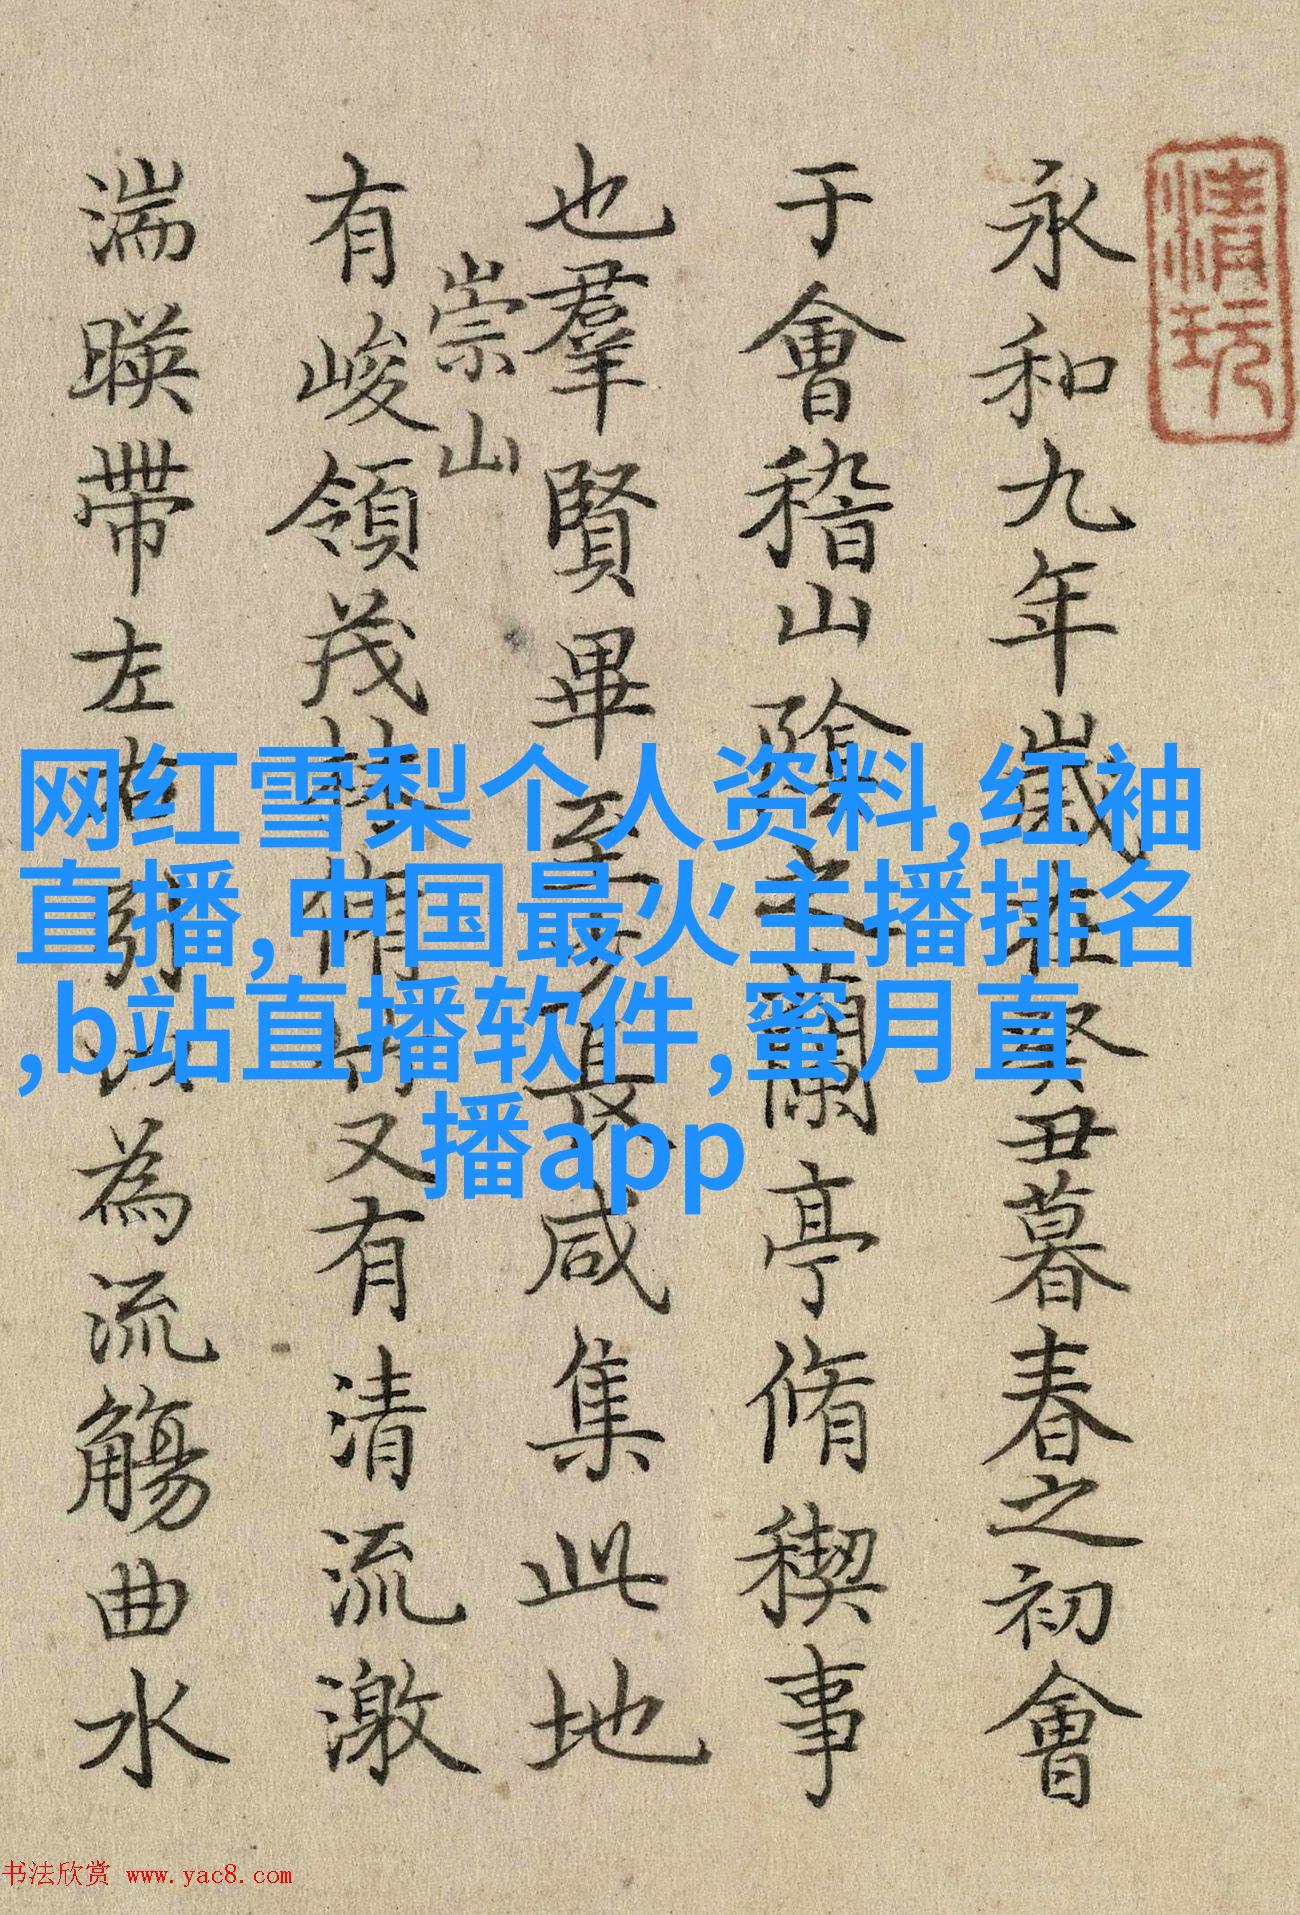 清玩
永和九年歲在癸丑暮春之初會
于會稽山陰之蘭亭脩稧事
也羣賢畢至少長咸集此地
崇山
有峻領茂林脩竹又有清流激
湍暎帶左右引以為流觴曲水
网红雪梨个人资料,红袖
直播,中国最火主播排名
,b站直播软件,蜜月直
播app
书法欣赏 www.yac8.com